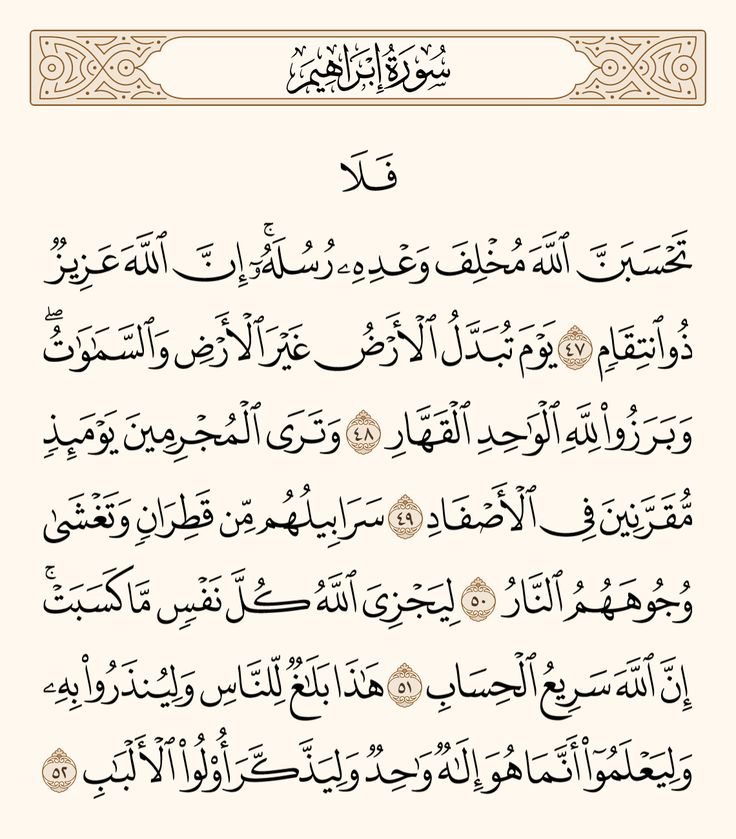 سُورَةُ إِبْرَاهِيمَ
فَلَا
تَحْسَبَنَّ ٱللَّهَ مُخْلِفَ وَعْدِهِۦ رُسُلَهُۥٓۚ إِنَّ ٱللَّهَ عَزِيزٌ
ذُو ٱنتِقَامٍ ٤٧ يَوْمَ تُبَدَّلُ ٱلْأَرْضُ غَيْرَ ٱلْأَرْضِ وَٱلسَّمَٰوَٰتُۖ
وَبَرَزُوا۟ لِلَّهِ ٱلْوَٰحِدِ ٱلْقَهَّارِ ٤٨ وَتَرَى ٱلْمُجْرِمِينَ يَوْمَئِذٍ
مُّقَرَّنِينَ فِى ٱلْأَصْفَادِ ٤٩ سَرَابِيلُهُم مِّن قَطِرَانٍ وَتَغْشَىٰ
وُجُوهَهُمُ ٱلنَّارُ ٥٠ لِيَجْزِىَ ٱللَّهُ كُلَّ نَفْسٍ مَّا كَسَبَتْۚ
إِنَّ ٱللَّهَ سَرِيعُ ٱلْحِسَابِ ٥١ هَٰذَا بَلَٰغٌ لِّلنَّاسِ وَلِيُنذَرُوا۟ بِهِۦ
وَلِيَعْلَمُوٓا۟ أَنَّمَا هُوَ إِلَٰهٌ وَٰحِدٌ وَلِيَذَّكَّرَ أُو۟لُوا۟ ٱلْأَلْبَٰبِ ٥٢